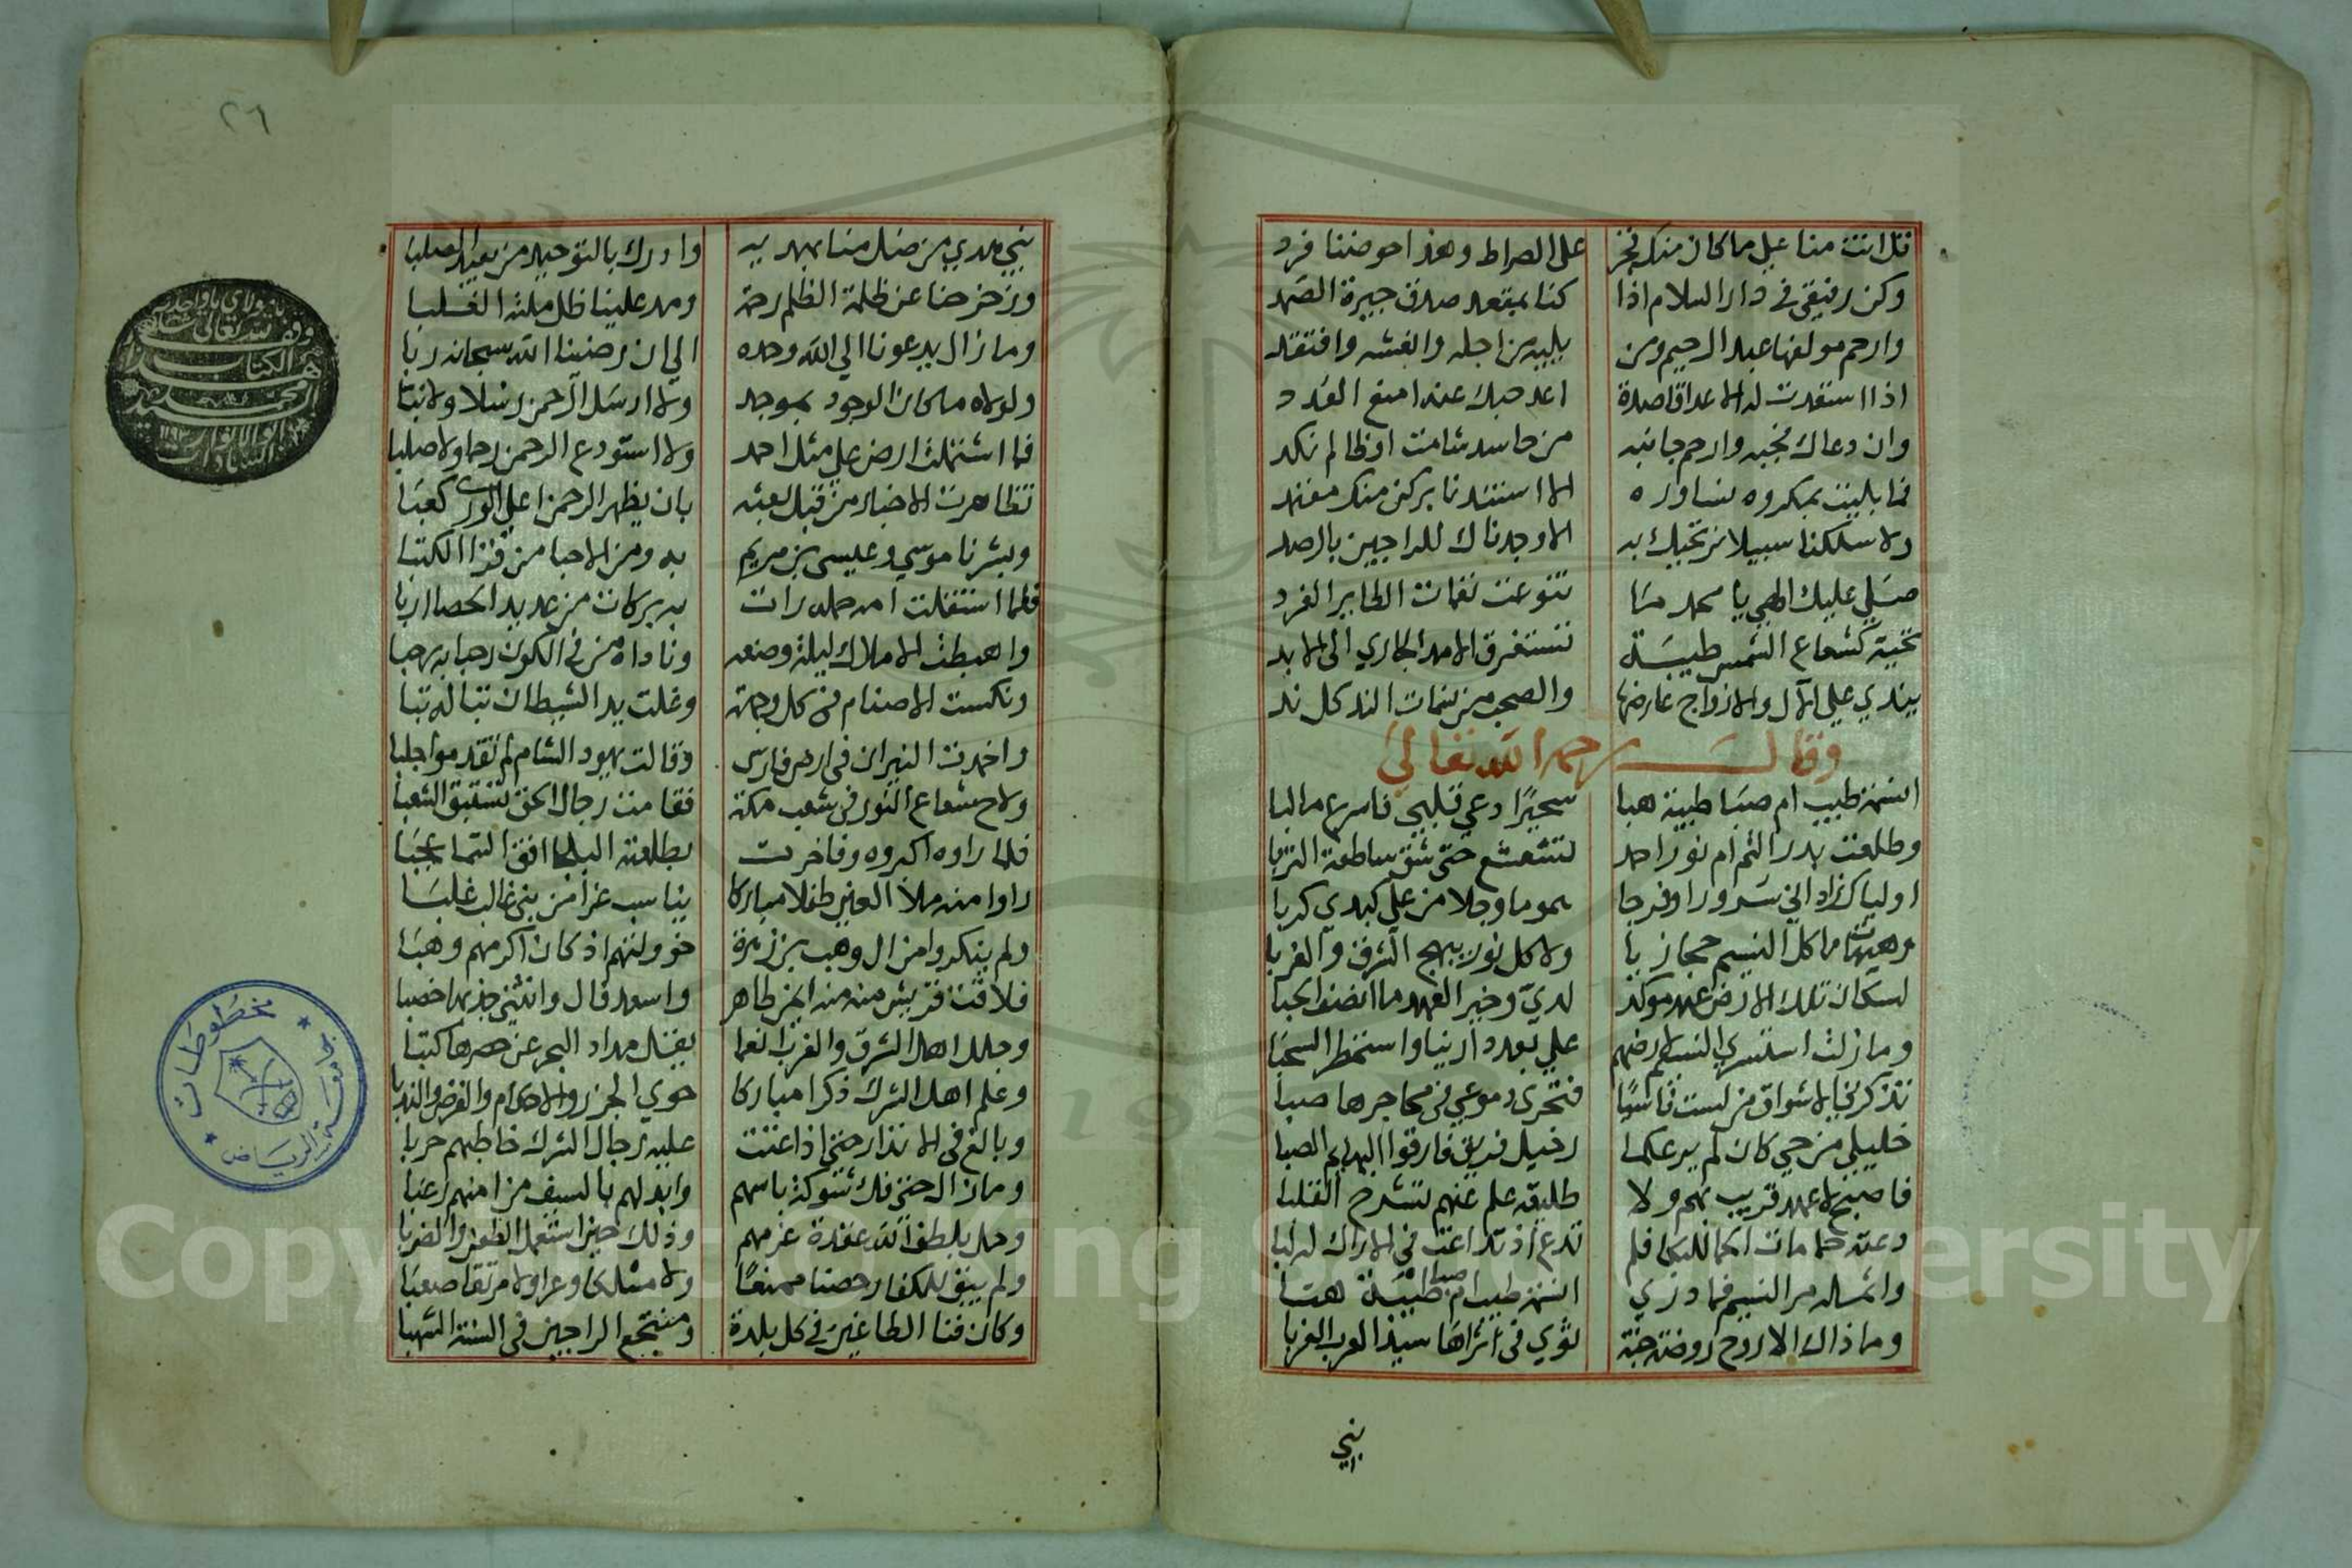 قل انت منا على ما كان منك نجز على الصراط وهذا حوضنا فرد
وكن رفيقي في دار السلام اذا كنا بمقعد صدق جيرة الصمد
وارحم مولفها عبد الرحيم ومن يليه من اجله وانعشه وافتقد
اذا استقدت له الاعداق اصدة اعد حبك عند امنع العدد
وان دعاك نجبه وارحم جانبه من حاسد شامت او ظالم نكد
فما بليت بمكروه نساوره الا استندنا بركن منك مفتد
ولا سلكنا سبيلا نرتجيك به الا وجدناك للراجين بالرصد
صلى عليك الهي يا محمد ما تنوعت نغمات الطاير الغرد
تحية كشعاع الشمس طيبة تستغرق الامد الجاري الى الابد
يندي على الآل والازواج عارضها والصحب من نسمات الند كل ند
وقال رحمه الله تعالى
انسمة طيب ام صبا طيبة هبا سحيرا دعى قلبي فاسرع ما لبا
وطلعت بدر التم ام نور احمد تشعشع حتى شق ساطعه التربا
اولياك زاد اني سرورا وفرحا هموما وجلا من على كبدي كربا
وهيهات ما كل النسيم حجازيا ولا كل نور يبهج الشرق والغربا
لسكان تلك الارض عهد موكد لدي وخير العهد ما انصف الحبا
وما زلت استسري النسيم لارضهم على بعد دارينا واستمطر السحبا
تذكرني الاشواق من لست ناسيا فتجري دموعي في محاجرها صبا
خليلي من حي كان لم يرعكما رحيل فريق فارقوا الهايم الصبا
فاصبح لا عهد قريب بهم ولا طليقه علم عنهم تشرح القلبا
دعته حمامات الحمى للبكا فلم تدع اذ تداعت في الاراك له لبا
واثمله مر النسيم فما درى انسمة طيب ام صبا طيبة هبا
وما ذاك الا روح روضة جنة ثوي في ثراها سيد العرب العربا
نبي
٢٦
نبي هدي من ضل منا بهديه وادرك بالتوحيد من بعبد الصلبا
وزحزحنا عن ظلمة الظلم رحمة ومد علينا ظل ملته الغلبا
وما زال يدعونا الى الله وحده الى ان رضينا الله سبحانه ربا
ولولاه ما كان الوجود بموجد ولا ارسل الرحمن رسلا ولا نبا
فما اشتملت ارض على مثل احمد ولا استودع الرحمن رحما ولا صلبا
تظاهرت الاخبار من قبل بعثه بان يظهر الرحمن اعلى الورى كعبا
وبشرنا موسى وعيسى بن مريم به ومن الاحبا من قرا الكتبا
فلما استقلت امه حمله رات به بركات من عديد الحصا اربا
واهبطت الاملاك ليلة وضعه وناداه من في الكون رحبا به رحبا
ونكست الاصنام في كل وجهة وغلت يد الشيطان تبا له تبا
واخمدت النيران في ارض فارس وقالت يهود الشام لم تقد مواجلبا
ولاح شعاع النور في شعب مكة فقامت رجال الحق تستبق الشعبا
فلما راوه اكبروه وفاخرت بطلعته البلحا افق السما عجبا
راوا منه ملا العين طفلا مباركا يناسب غرا من بني غالب غلبا
ولم ينكروا من ال وهب بن زهرة خوولتهم اذ كان اكرمهم وهبا
فلاقت قريش منه من ايمن طاهر واسعد فال وانثنى جدبها خصبا
وجلل اهل الشرق والغرب انعما يقل مداد البحر عن حصرها كتبا
وعلم اهل الشرك ذكرا مباركا حوي الجزر والاحكام والفرض والندبا
وبالغ في الانذار حتى اذا عتت عليه رجال الشرك خاطبهم حربا
وما زال حتى فك شوكة باسهم وابدلهم بالسيف من امنهم رعبا
وحل بلطف الله عقدة عزمهم وذلك حين استعمل الطعن والضربا
ولم يبق للكفار حصنا ممنعا ولا مسلكا وعرا ولا مرتقا صعبا
وكان فنا الطاغين في كل بلدة ومنتجع الراجين في السنة الشهبا
وقف لله تعالى
هذا الكتاب
السيد محمد
ابو الانوار
السادات
جامعة الرياض
مخطوطات
Copyright © King Saud University
195